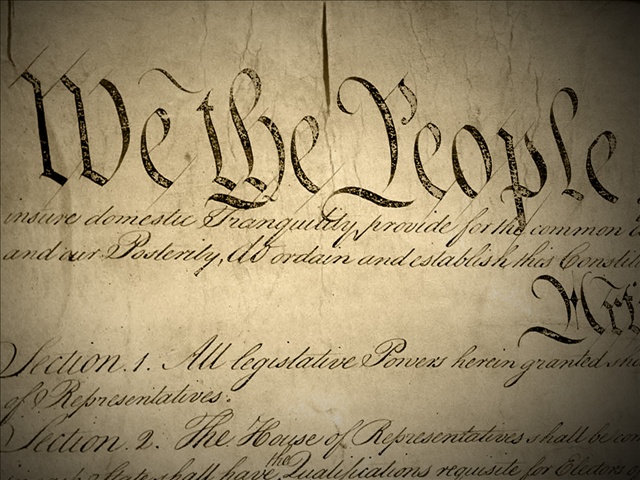 We the People
insure domestic Tranquility, provide for the common
and our Posterity, do ordain and establish this Constit
Arti
Section. 1. All legislative Powers herein granted sha
of Representatives.
Section. 2. The House of Representatives shall be com
the
State shall have Qualifications requisite for Electors of